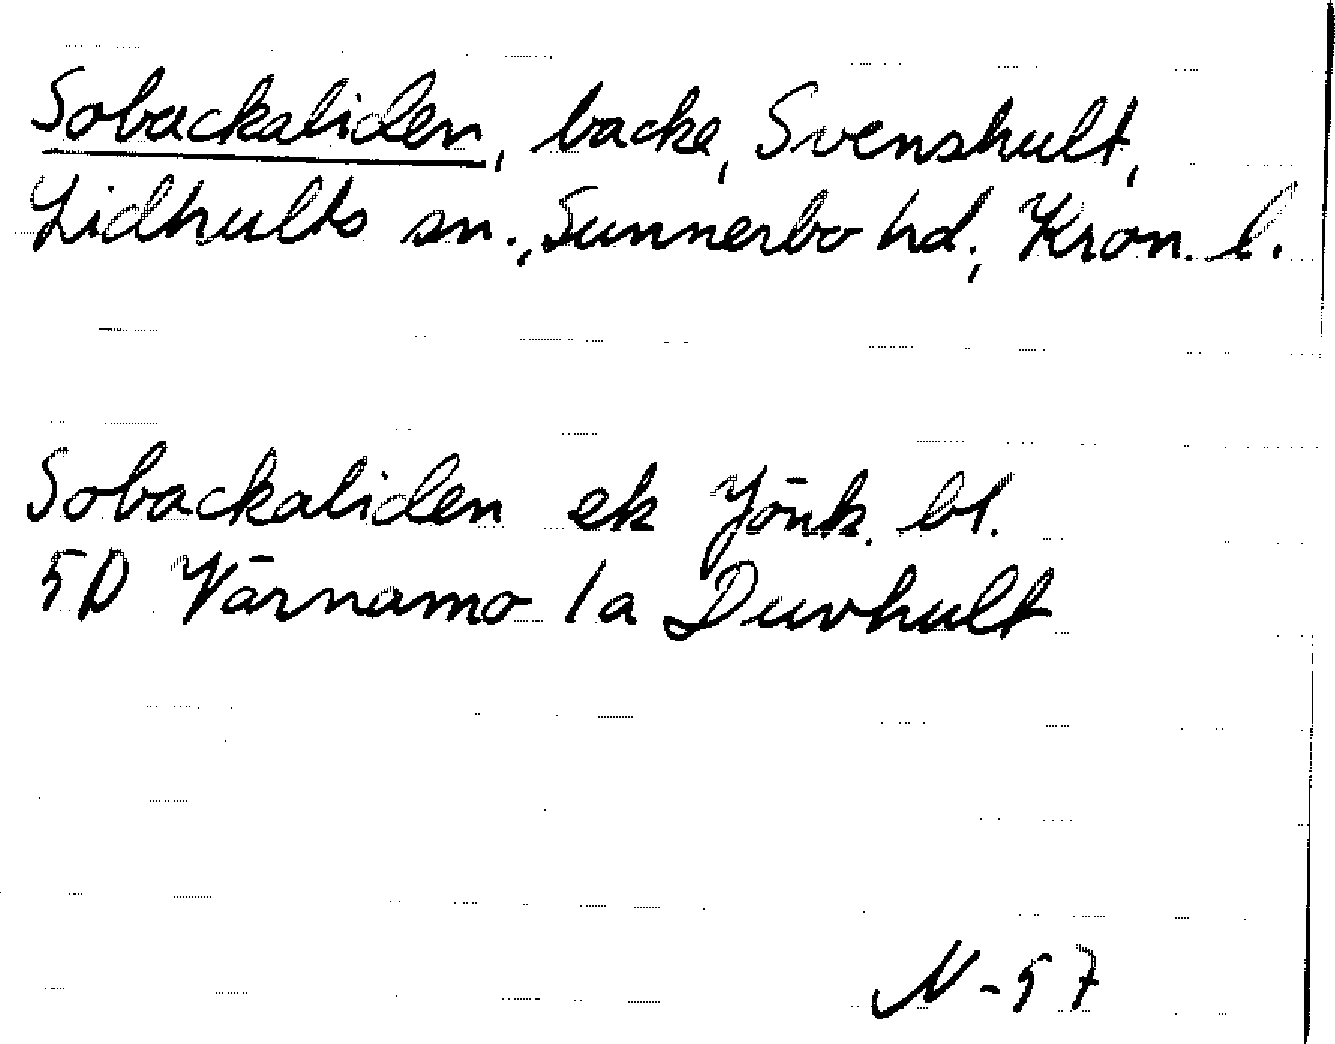 Sobackaliden, backe, Svenshult,
Lidhults sn., Sunnerbo hd., Kron. l.
Sobackaliden ek Jönk. bl.
5D Värnamo 1a Duvhult
N-57